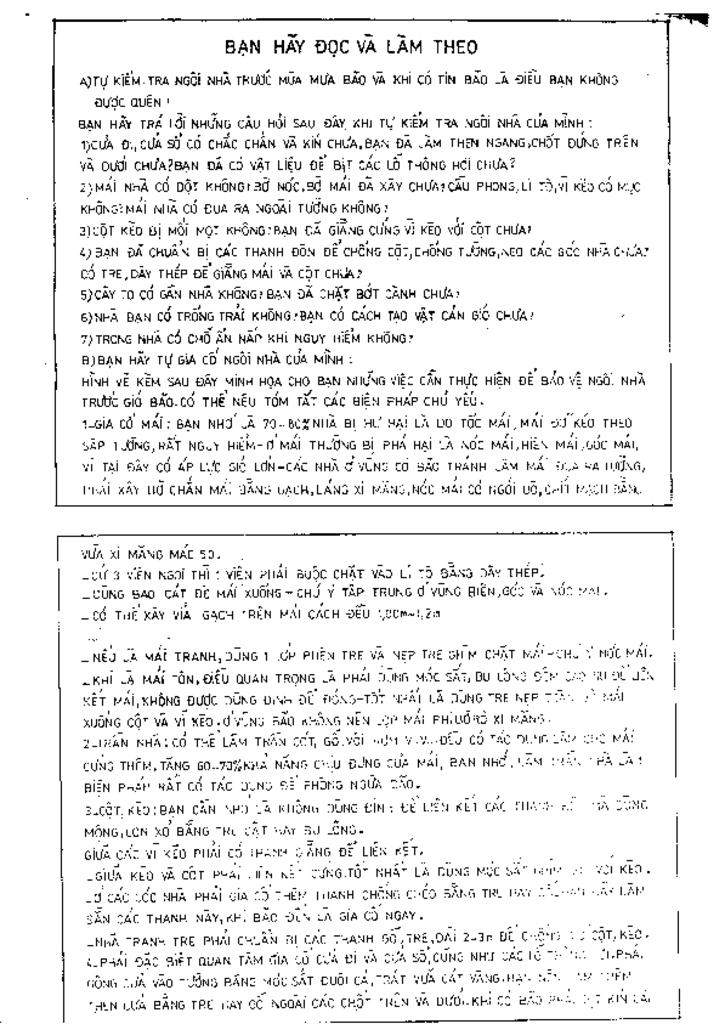 BẠN HÃY ĐỌC VÀ LÀM THEO
A)TỰ KIỂM TRA NGÔI NHÀ TRƯỚC MÙA MƯA BÃO VÀ KHI CÓ TIN BÃO LÀ ĐIỀU BẠN KHÔNG
ĐƯỢC QUÊN!
BẠN HÃY TRẢ LỜI NHỮNG CÂU HỎI SAU ĐÂY KHI TỰ KIỂM TRA NGÔI NHÀ CỦA MÌNH:
1)CỬA ĐI,CỬA SỔ CÓ CHẮC CHẮN VÀ KÍN CHƯA,BẠN ĐÃ LÀM THEN NGANG,CHỐT ĐỨNG TRÊN
VÀ DƯỚI CHƯA?BẠN ĐÃ CÓ VẬT LIỆU ĐỂ BỊT CÁC LỖ THÔNG HƠI CHƯA?
2)MÁI NHÀ CÓ DỘT KHÔNG?BỜ NÓC,BỜ MÁI ĐÃ XÂY CHƯA?CẦU PHONG,LI TÔ,VÌ KÈO CÓ MỤC
KHÔNG?MÁI NHÀ CÓ ĐUA RA NGOÀI TƯỜNG KHÔNG?
3)CỘT KÈO BỊ MỐI MỌT KHÔNG?BẠN ĐÃ GIẰNG CỨNG VÌ KÈO VỚI CỘT CHƯA?
4)BẠN ĐÃ CHUẨN BỊ CÁC THANH ĐÒN ĐỂ CHỐNG CỘT,CHỐNG TƯỜNG,NEO CÁC GÓC NHÀ CHƯA?
CÓ TRE,DÂY THÉP ĐỂ GIẰNG MÁI VÀ CỘT CHƯA?
5)CÂY TO CÓ GẦN NHÀ KHÔNG?BẠN ĐÃ CHẶT BỚT CÀNH CHƯA?
6)NHÀ BẠN CÓ TRỐNG TRẢI KHÔNG?BẠN CÓ CÁCH TẠO VẬT CẢN GIÓ CHƯA?
7)TRONG NHÀ CÓ CHỖ ẨN NẤP KHI NGUY HIỂM KHÔNG?
B)BẠN HÃY TỰ GIA CỐ NGÔI NHÀ CỦA MÌNH:
HÌNH VẼ KÈM SAU ĐÂY MINH HỌA CHO BẠN NHỮNG VIỆC CẦN THỰC HIỆN ĐỂ BẢO VỆ NGÔI NHÀ
TRƯỚC GIÓ BÃO.CÓ THỂ NÊU TÓM TẮT CÁC BIỆN PHÁP CHỦ YẾU.
1-GIA CỐ MÁI: BẠN NHỚ LÀ 70-80%NHÀ BỊ HƯ HẠI LÀ DO TỐC MÁI,MÁI ĐỔ KÉO THEO
SẬP TƯỜNG,RẤT NGUY HIỂM-Ở MÁI THƯỜNG BỊ PHÁ HẠI LÀ NÓC MÁI,HIÊN MÁI,GÓC MÁI,
VÌ TẠI ĐÂY CÓ ÁP LỰC GIÓ LỚN-CÁC NHÀ Ở VÙNG CÓ BÃO TRÁNH LÀM MÁI ĐUA RA TƯỜNG,
PHẢI XÂY BỜ CHẮN MÁI BẰNG GẠCH,LÁNG XI MĂNG,NÓC MÁI CÓ NGÓI BÒ,CHÍT MẠCH BẰNG
VỮA XI MĂNG MÁC 50.
-CỨ 3 VIÊN NGÓI THÌ 1 VIÊN PHẢI BUỘC CHẶT VÀO LI TÔ BẰNG DÂY THÉP.
-DÙNG BAO CÁT ĐÈ MÁI XUỐNG-CHÚ Ý TẬP TRUNG Ở VÙNG BIÊN,GÓC VÀ NÓC MÁI.
-CÓ THỂ XÂY VỈA GẠCH TRÊN MÁI CÁCH ĐỀU 1,00m-1,2m
-NẾU LÀ MÁI TRANH,DÙNG 1 LỚP PHÊN TRE VÀ NẸP TRE GHÌM CHẶT MÁI-CHÚ Ý NÓC MÁI.
-KHI LÀ MÁI TÔN,ĐIỀU QUAN TRỌNG LÀ PHẢI DÙNG MÓC SẮT,BU LÔNG ĐỆM CAO SU ĐỂ LIÊN
KẾT MÁI,KHÔNG ĐƯỢC DÙNG ĐINH ĐỂ ĐÓNG-TỐT NHẤT LÀ DÙNG TRE NẸP MÁI
XUỐNG CỘT VÀ VÌ KÈO.Ở VÙNG BÃO KHÔNG NÊN LỢP MÁI PHIBRÔ XI MĂNG.
2-TRẦN NHÀ:CÓ THỂ LÀM TRẦN CÓT,GỖ,VÔI RƠM V.V.-ĐỀU CÓ TÁC DỤNG LÀM CHO MÁI
CỨNG THÊM,TĂNG 60-70%KHẢ NĂNG CHỊU ĐỰNG CỦA MÁI, BẠN NHỚ, LÀM TRẦN NHÀ LÀ 1
BIỆN PHÁP RẤT CÓ TÁC DỤNG ĐỂ PHÒNG NGỪA BÃO.
3-CỘT,KÈO:BẠN CẦN NHỚ LÀ KHÔNG DÙNG ĐINH ĐỂ LIÊN KẾT CÁC THANH MÀ DÙNG
MỘNG,LỖN XỎ BẰNG TRE CẬT HAY BU LÔNG.
GIỮA CÁC VÌ KÈO PHẢI CÓ THANH GIẰNG ĐỂ LIÊN KẾT.
-GIỮA KÈO VÀ CỘT PHẢI LIÊN KẾT CỨNG,TỐT NHẤT LÀ DÙNG MÓC SẮT VỚI KÈO.
-Ở CÁC GÓC NHÀ PHẢI GIA CỐ THÊM THANH CHỐNG CHÉO BẰNG TRE HAY GỖ,BẠN HÃY LÀM
SẴN CÁC THANH NÀY,KHI BÃO ĐẾN LÀ GIA CỐ NGAY.
-NHÀ TRANH TRE PHẢI CHUẨN BỊ CÁC THANH GỖ,TRE,DÀI 2-3m ĐỂ CHỐNG CỘT,KÈO.
4-PHẢI ĐẶC BIỆT QUAN TÂM GIA CỐ CỬA ĐI VÀ CỬA SỔ,CŨNG NHƯ CÁC LỖ THÔNG HƠI.PHẢI
ĐÓNG CỬA VÀO TƯỜNG BẰNG MÓC SẮT ĐUÔI CÁ,TRÁT VỮA CÁT VÀNG.BẠN NÊN LÀM THÊM
THEN CỬA BẰNG TRE HAY GỖ NGOÀI CÁC CHỐT TRÊN VÀ DƯỚI.KHI CÓ BÃO PHẢI BỊT KÍN CÁC